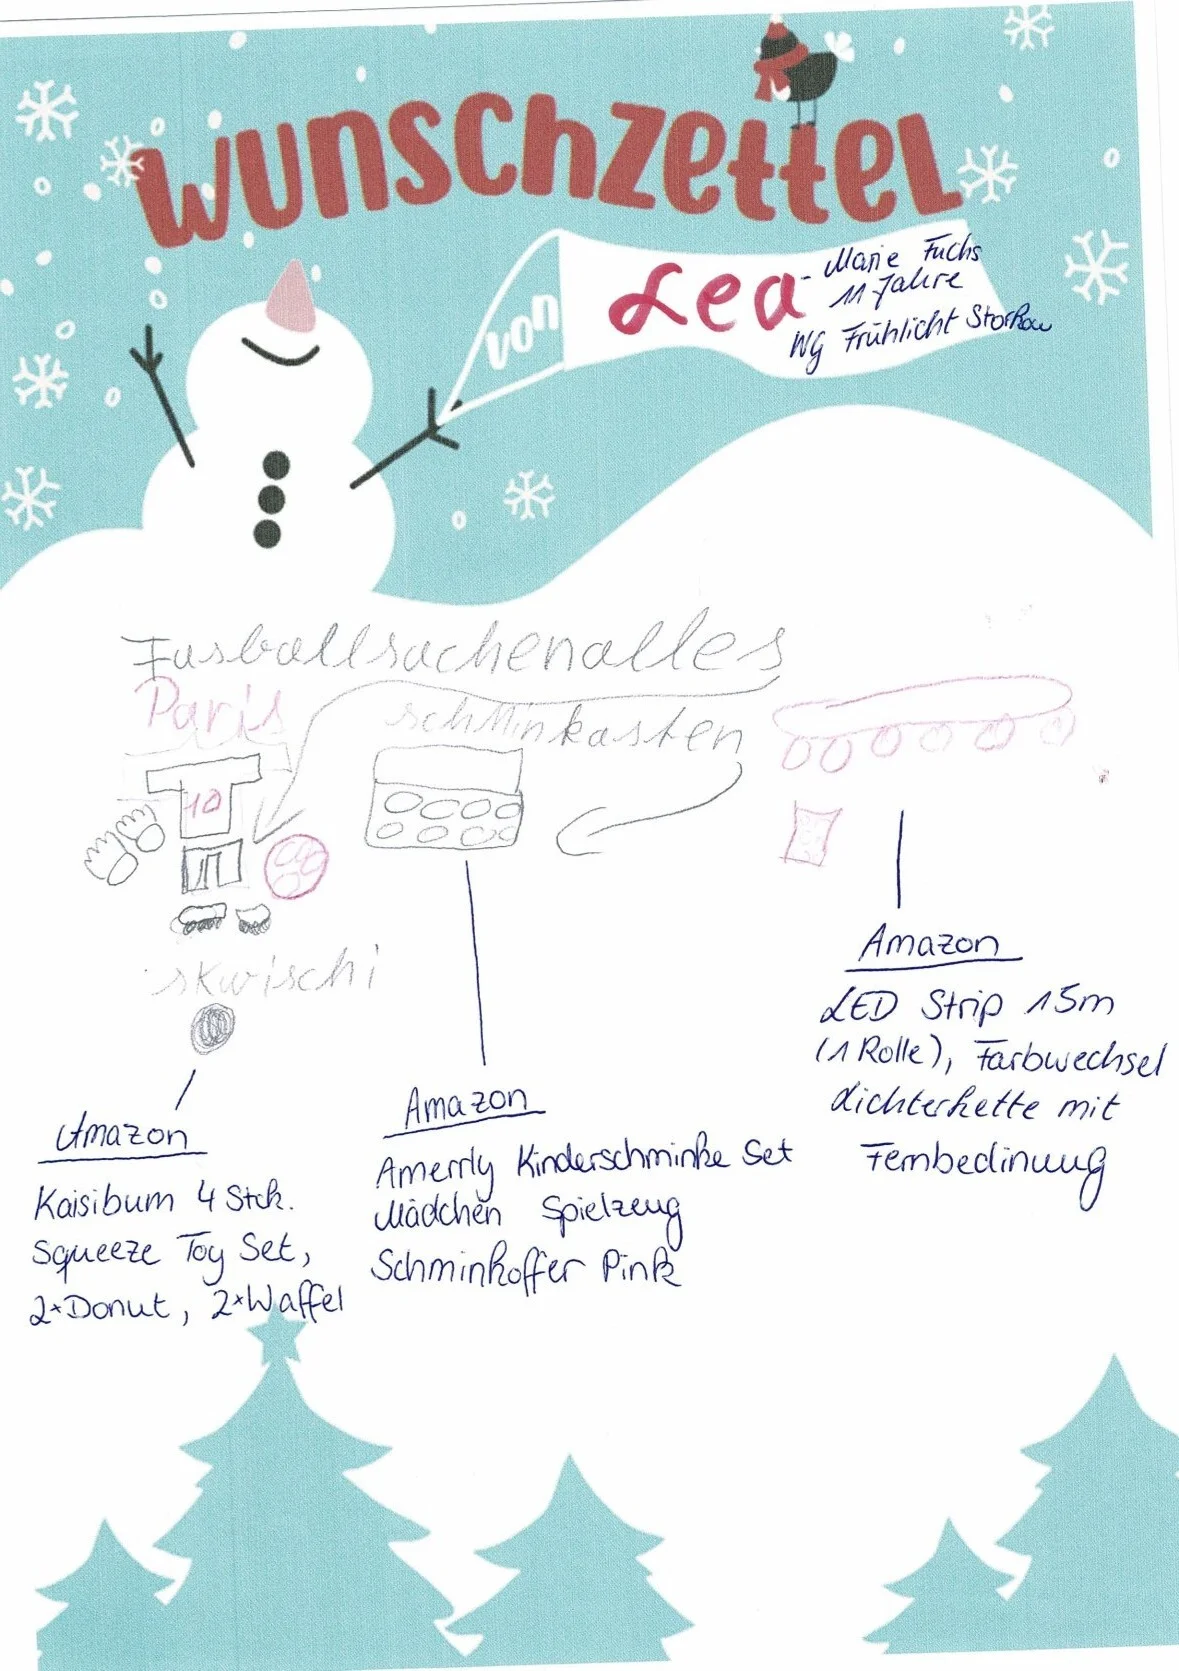 Wunschzettel
von Lea-Marie Fuchs
11 Jahre
WG Frühlicht Storkow
Fusballsachenalles
Paris
schminkasten
10
skwischi
Amazon
Kaisibum 4 Stck.
Squeeze Toy Set,
2*Donut, 2*Waffel
Amazon
Amerrly Kinderschminke Set
Mädchen Spielzeug
Schminkoffer Pink
Amazon
LED Strip 15m
(1 Rolle), Farbwechsel
Lichterkette mit
Fernbedinuug